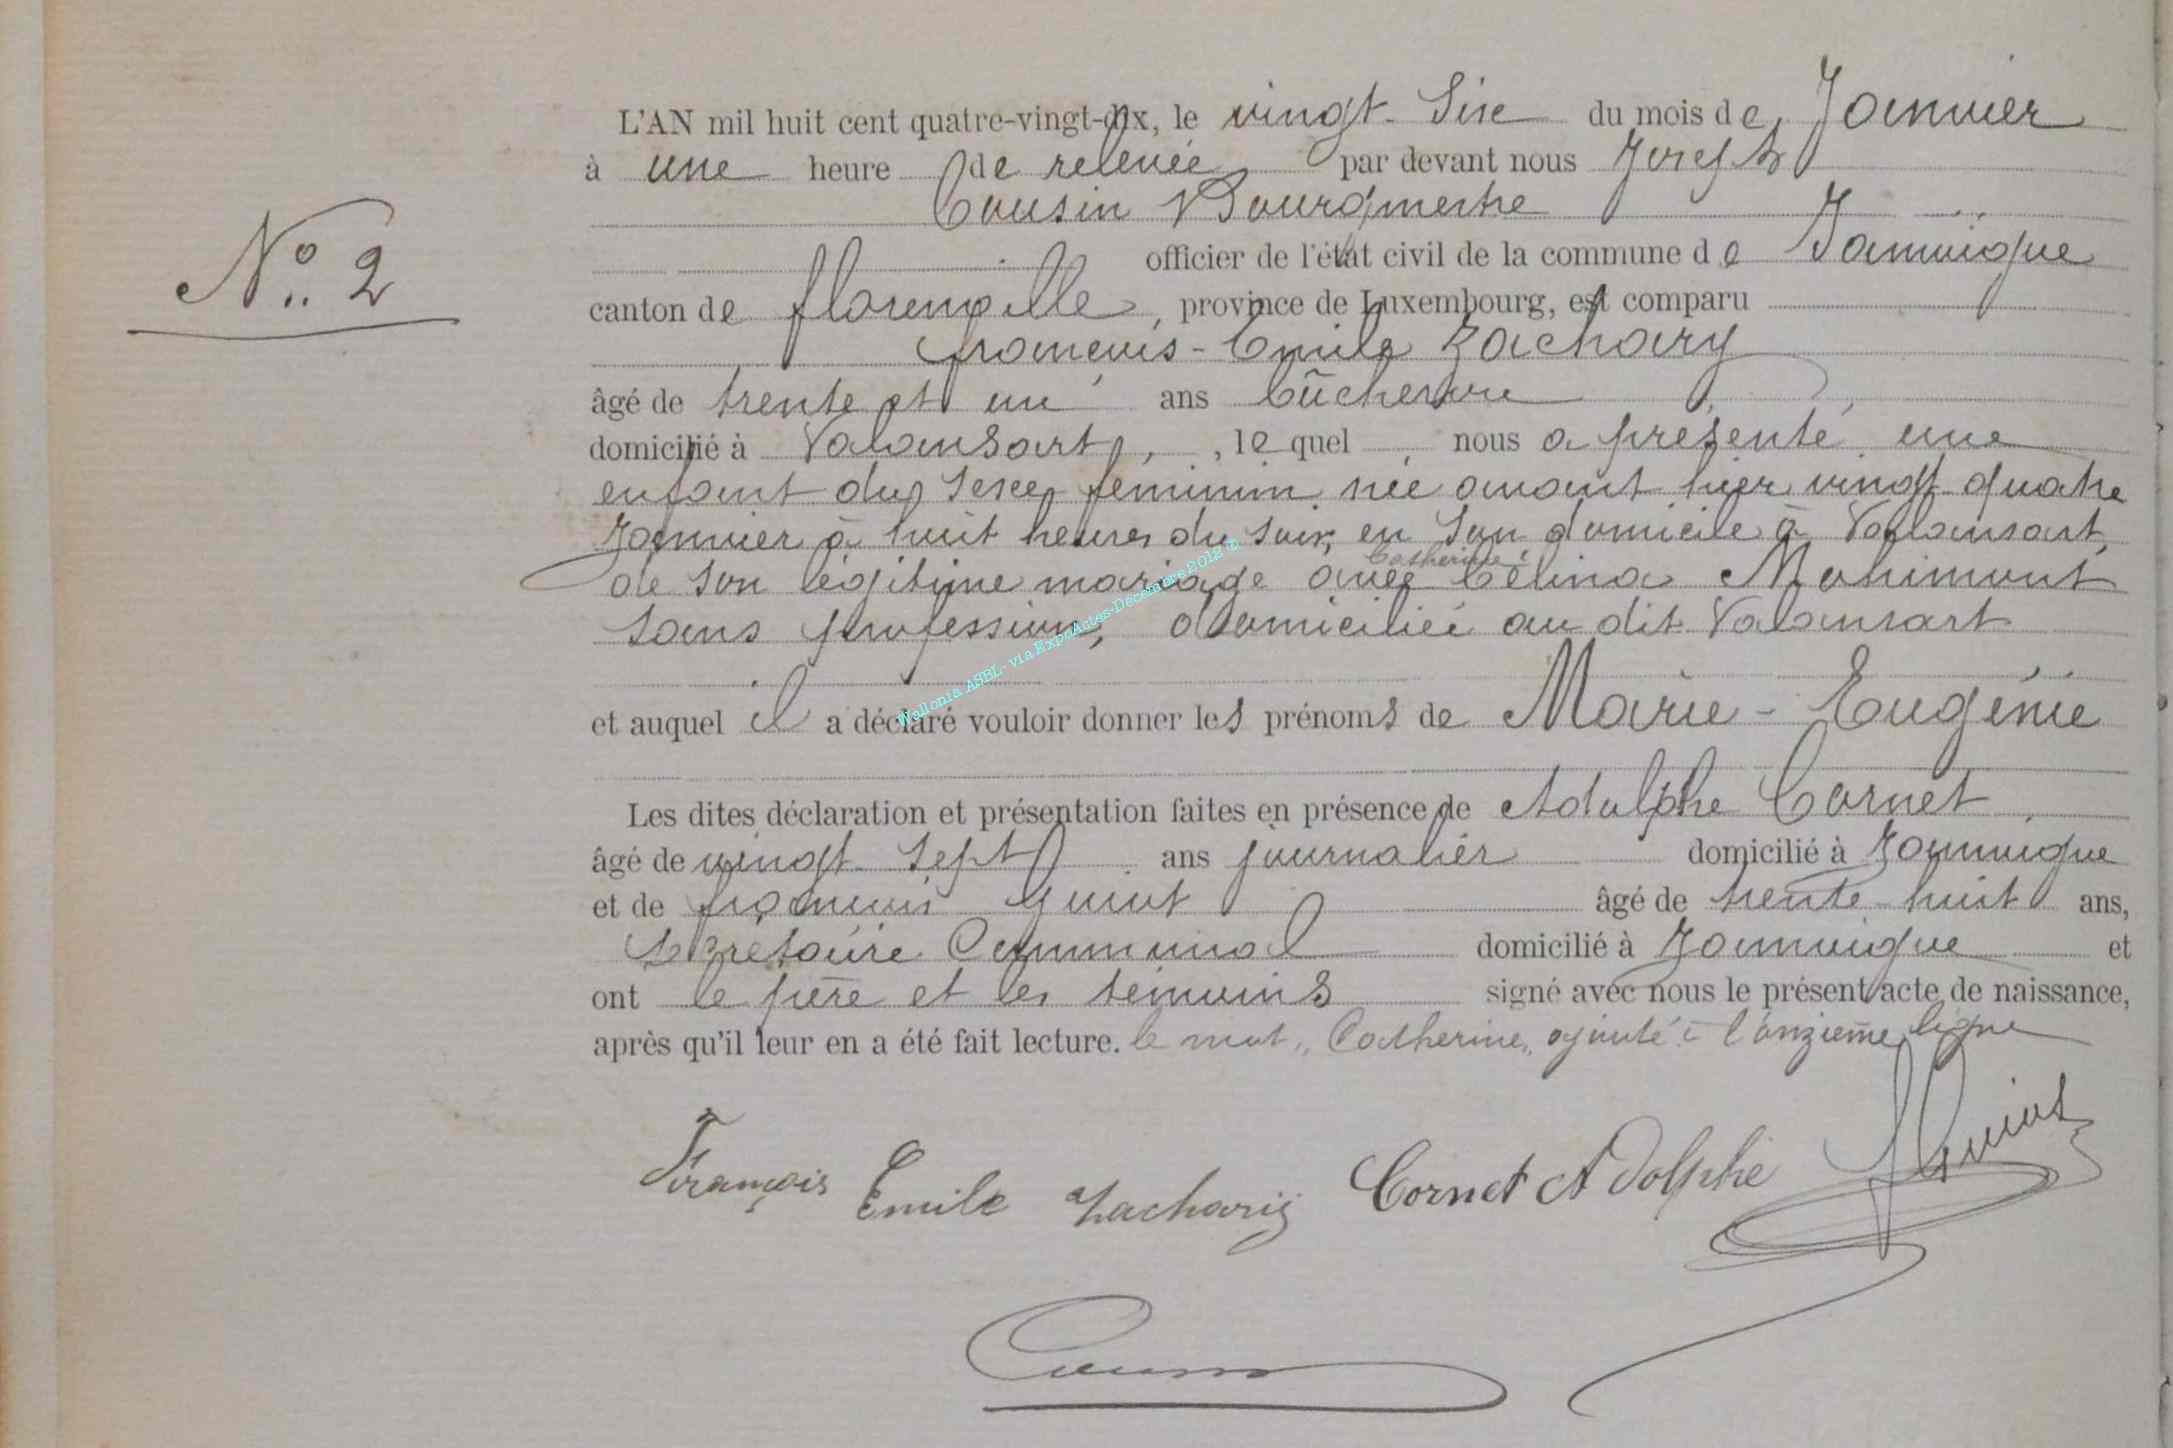 L'AN mil huit cent quatre-vingt-dix, le vingt-Six du mois de Janvier
à une heure de relevée par devant nous Joseph
Cousin Bourgmestre
officier de l'état civil de la commune de Jamoigne
N° 2
canton de florenville, province de Luxembourg, est comparu
françois-Emile Zachary
âgé de trente et un ans bûcheron
domicilié à Valansart, , le quel nous a présenté une
enfant du Sexe feminin née avant hier vingt quatre
Janvier à huit heures du soir, en Son domicile à Valansart,
de Son légitime mariage avec Catherine Célina Mohimont
Sans profession, domiciliée au dit Valansart
et auquel il a déclaré vouloir donner les prénoms de Marie-Eugénie
Les dites déclaration et présentation faites en présence de Adolphe Cornet
âgé de vingt-Sept ans journalier domicilié à Jamoigne
et de françois Guiot âgé de trente-huit ans,
Secrétaire Communal domicilié à Jamoigne et
ont le père et les témoins signé avec nous le présent acte de naissance,
après qu'il leur en a été fait lecture. le mot „Catherine„ ajouté à l'onzième ligne
François Emile Zachariy Cornet Adolphe FGuiot
Cousin
Wallonia ASBL - via ExpoActes-Décembre 2012 ©